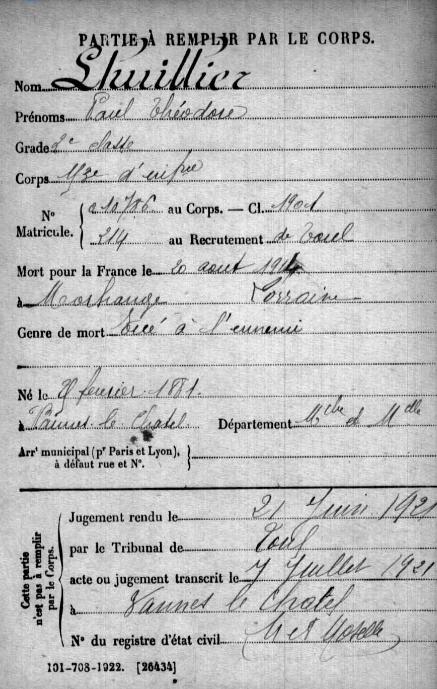 PARTIE À REMPLIR PAR LE CORPS.
Nom Lhuillier
Prénoms Paul Théodore
Grade 2e classe
Corps d'inf rie
No Matricule. { 010786 au Corps. — Cl. 1901
214 au Recrutement de Toul
Mort pour la France le 20 aout 1914
à Morhange Lorraine
Genre de mort Tué à l'ennemi
Né le février 1881.
à Vannes le Chatel Département Mthe et Mlle
Arrt municipal (pr Paris et Lyon),
à défaut rue et No.
Cette partie n'est pas à remplir par le Corps.
Jugement rendu le 21 Juin 1921
par le Tribunal de Toul
acte ou jugement transcrit le 7 Juillet 1921
à Vannes le Chatel
No du registre d'état civil M et Moselle
101-708-1922. [26434]